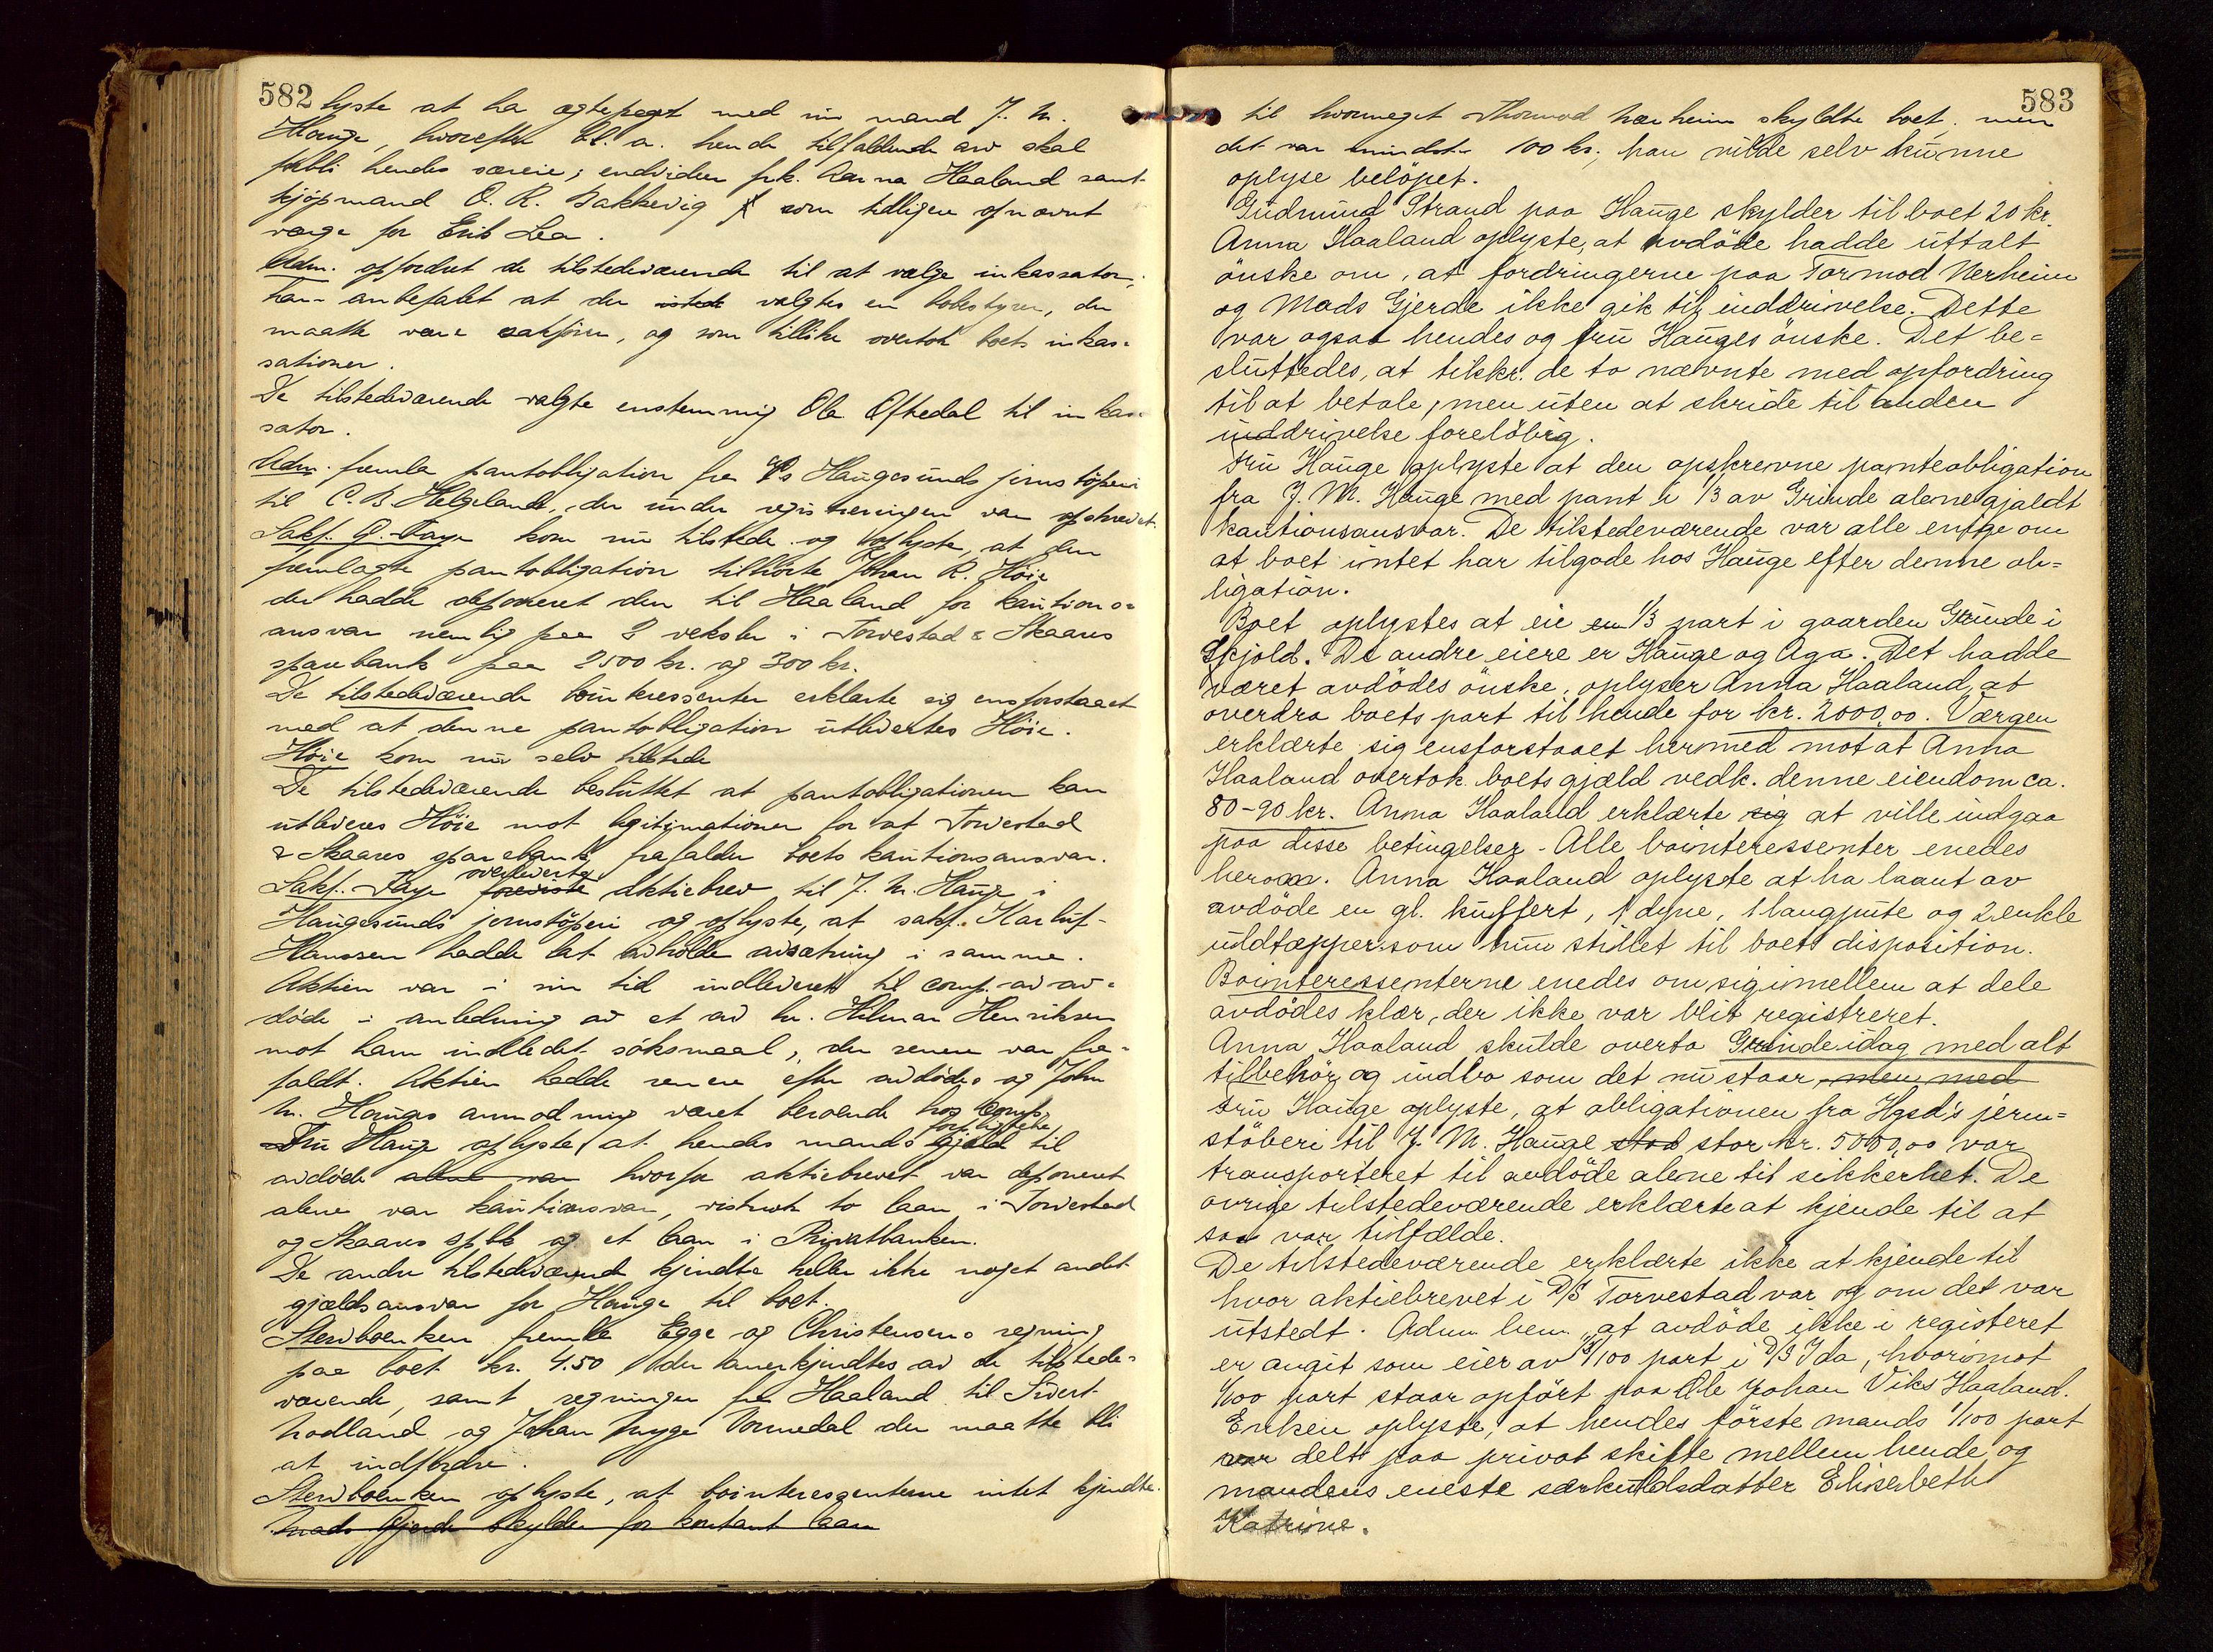 582
lyste at ha ægtepagt med sin mand J. M.
Hauge, hvorefter bl. a. hende tilfaldende arv skal
forbli hendes særeie; endvidere frk. Anna Haaland samt
kjöpmand O. R. Bakkevig som tidligere opnævnt
værge for Erik Lea.
Adm. opfordret de tilstedeværende til at vælge inkassator,
han anbefalet at der istede valgtes en bobestyrer, der
maatte være sakförer, og som tillike overtok boets inkas-
sationer.
De tilstedeværende valgte enstemmig Ole Oftedal til inkas-
sator.
Adm. fremla pantobligation fra A/s Haugesunds jernstöperi
til C. B. Helgeland, der under registreringen var opskrevet.
Sakf. G. Faye kom nu tilstede og oplyste, at den
fremlagte pantobligation tilhörte Johan R. Höie
der hadde deponeret den til Haaland for kautions-
ansvar nemlig paa 2 veksler i Torvestad & Skaares
sparebank paa 2500 kr. og 300 kr.
De tilstedeværende bointeressenter erklærte sig ensforstaaet
med at denne pantobligation utlevertes Höie.
Höie kom nu selv tilstede
De tilstedeværende besluttet at pantobligationen kan
utleveres Höie mot legitimationer for at Torvestad
& Skaares sparebank frafalder boets kautionsansvar.
overleverte
Sakf. Faye foreviste aktiebrev til J. M. Hauge i
Haugesunds jernstöperi og oplyste, at sakf. Karluf
Hanssen hadde lat avholde utlægning i samme.
Aktien var i sin tid indleveret til comp. av av-
döde i anledning av et av hr. Hilmar Henriksen
mot ham indledet söksmaal, der senere var fra-
faldt. Aktien hadde senere efter avdödes og John
M. Hauges anmodning været beroende hos comp.
forpligtelse
Fru Hauge oplyste, at hendes mands gjæld til
avdöde alene var hvorfor aktiebrevet var deponeret
alene var kautionsvar, vistnok to laan i Torvestad
og Skaares spbk og et laan i Privatbanken.
De andre tilstedeværende kjendte heller ikke noget andet
gjældsansvar for Hauge til boet.
Stervboenken fremla Egge og Christensens regning
paa boet kr. 4.50 der anerkjendtes av de tilstede-
værende, samt regninger fra Haaland til Sivert
Nodland og Johan Mygn Vormedal der maatte bli
at indfordre.
Stervboenken oplyste, at bointeressenterne intet kjendte
Mads Gjerde skylder for kontant laan
583
til hvormeget Thormod Nærheim skyldte boet, men
det var mindst 100 kr.; han vilde selv kunne
oplyse belöpet.
Gudmund Strand paa Hauge skylder til boet 20 kr.
Anna Haaland oplyste, at avdöde hadde uttalt
önske om, at fordringerne paa Tormod Nerheim
og Mads Gjerde ikke gik til inddrivelse. Dette
var ogsaa hendes og fru Hauges önske. Det be-
sluttedes, at tilskr. de to nævnte med opfordring
til at betale, men uten at skride til anden
inddrivelse forelöbig.
Fru Hauge oplyste at den opskrevne panteobligation
fra J. M. Hauge med pant i 1/3 av Grinde alene gjaldt
kautionsansvar. De tilstedeværende var alle enige om
at boet intet har tilgode hos Hauge efter denne ob-
ligation.
Boet oplystes at eie en 1/3 part i gaarden Grinde i
Skjold. De andre eiere er Hauge og Aga. Det hadde
været avdödes önske, oplyser Anna Haaland, at
overdra boets part til hende for kr. 2000,00. Værgen
erklærte sig ensforstaaet hermed mot at Anna
Haaland overtok boets gjæld vedk. denne eiendom ca.
80-90 kr. Anna Haaland erklærte sig at ville indgaa
paa disse betingelser. Alle bointeressenter enedes
herom. Anna Haaland oplyste at ha laant av
avdöde en gl. kuffert, 1 dyne, 1 langpute og 2 enkle
uldtæpper som hun stillet til boets disposition.
Bointeressenterne enedes om sig imellem at dele
avdödes klær, der ikke var blit registreret.
Anna Haaland skulde overta Grinde idag med alt
tilbehör og indbo som det nu staar, men med
Fru Hauge oplyste, at obligationen fra Hgsd's jern-
stöberi til J. M. Hauge stod stor kr. 5000,00 var
transporteret til avdöde alene til sikkerhet. De
övrige tilstedeværende erklærte at kjende til at
saa var tilfælde.
De tilstedeværende erklærte ikke at kjende til
hvor aktiebrevet i D/S Torvestad var og om det var
utstedt. Adm. bem. at avdöde ikke i registeret
er angit som eier av 1/100 part i D/S Ida, hvorimot
1/100 part staar opfört paa Ole Johan Viks Haaland.
Enken oplyste, at hendes förste mands 1/100 part
var delt paa privat skifte mellem hende og
mandens eneste særkuldsdatter Elisebeth
Katrine.